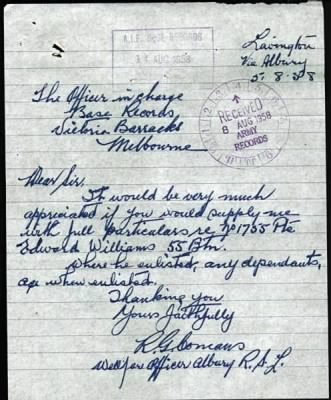 A.I.F. BASE RECORDS
14 AUG 1958
Lavington
Via Albury
5.8.58
RECEIVED
8 AUG 1958
ARMY
RECORDS
The Officer in charge
Base Records,
Victoria Barracks
Melbourne
Dear Sir.
It would be very much
appreciated if you would supply me
with full particulars re, No 1755 Pte
Edward Williams 55 Btn.
Where he enlisted, any dependants,
age when enlisted.
Thanking you
Yours faithfully
R.G. Comans
Welfare Officer Albury R.S.L.